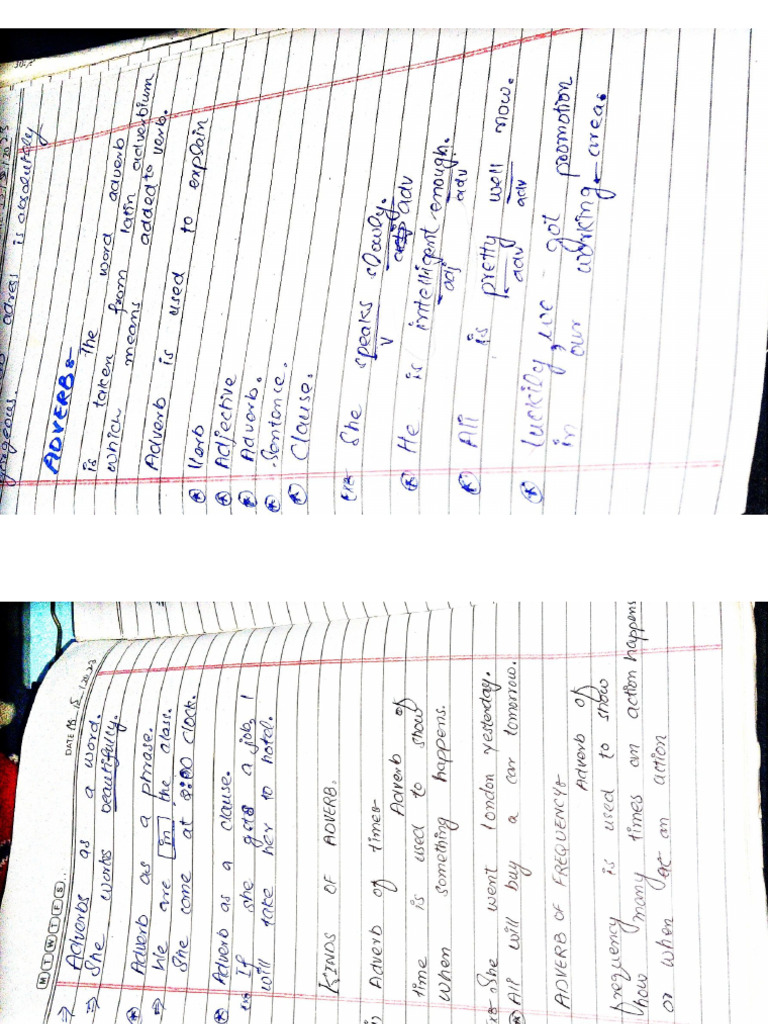 gorgeous. adress is absolutely
ADVERB:-
is the word adverb
which taken from latin adverbium
means added to verb.
Adverb is used to explain
Verb
Adjective
Adverb.
Sentence.
Clause.
Ex:- She speaks slowly.
V adv
He is intelligent enough.
adj adv
Ali is pretty well now.
adv adv
Luckily, we got promotion
in our working area.
M T W T F S
DATE 18/5/2023
Adverbs as a word.
She works beautifully.
Adverb as a phrase.
We are in the class.
She come at 8:00 clock.
Adverb as a clause.
Ex:- If she gets a job, I
will take her to hotel.
KINDS OF ADVERB.
Adverb of time:-
Adverb of
time is used to show
when something happens.
Ex:- She went london yesterday.
Ali will buy a car tomorrow.
ADVERB OF FREQUENCY:-
Adverb of
frequency is used to show
how many times an action happens
or when an action